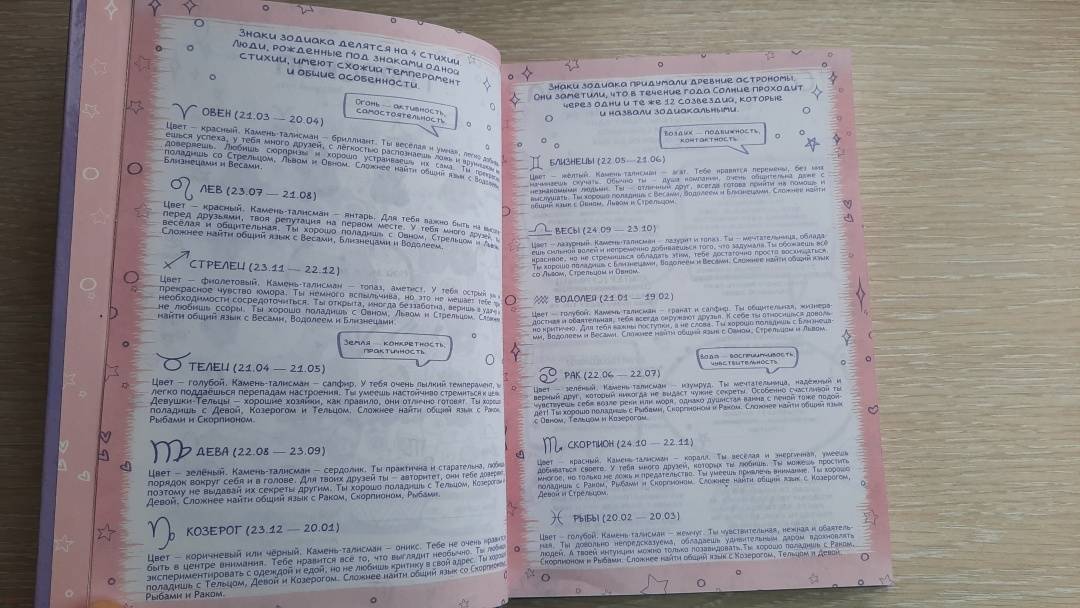 Знаки зодиака делятся на 4 стихии
Люди, рожденные под знаками одной
стихии, имеют схожий темперамент
и общие особенности.
Огонь — активность,
самостоятельность.
ОВЕН (21.03 — 20.04)
Цвет — красный. Камень-талисман — бриллиант. Ты весёлая и умная, легко добива-
ешься успеха, у тебя много друзей, с лёгкостью распознаешь ложь и врунишкам не
доверяешь. Любишь сюрпризы и хорошо устраиваешь их сама. Ты прекрасно
поладишь со Стрельцом, Львом и Овном. Сложнее найти общий язык с Водолеем,
Близнецами и Весами.
ЛЕВ (23.07 — 21.08)
Цвет — красный. Камень-талисман — янтарь. Для тебя важно быть на высоте
перед друзьями, твоя репутация на первом месте. У тебя много друзей, ты
весёлая и общительная. Ты хорошо поладишь с Овном, Стрельцом и Львом.
Сложнее найти общий язык с Весами, Близнецами и Водолеем.
СТРЕЛЕЦ (23.11 — 22.12)
Цвет — фиолетовый. Камень-талисман — топаз, аметист. У тебя острый ум и
прекрасное чувство юмора. Ты немного вспыльчива, но это не мешает тебе при
необходимости сосредоточиться. Ты открыта, иногда беззаботна, веришь в удачу и
не любишь ссоры. Ты хорошо поладишь с Овном, Львом и Стрельцом. Сложнее
найти общий язык с Весами, Водолеем и Близнецами.
Земля — конкретность,
практичность.
ТЕЛЕЦ (21.04 — 21.05)
Цвет — голубой. Камень-талисман — сапфир. У тебя очень пылкий темперамент,
легко поддаёшься перепадам настроения. Ты умеешь настойчиво стремиться к цели.
Девушки-Тельцы — хорошие хозяйки, как правило, они отлично готовят. Ты хорошо
поладишь с Девой, Козерогом и Тельцом. Сложнее найти общий язык с Раком,
Рыбами и Скорпионом.
ДЕВА (22.08 — 23.09)
Цвет — зелёный. Камень-талисман — сердолик. Ты практична и старательна, любишь
порядок вокруг себя и в голове. Для твоих друзей ты — авторитет, они тебе доверяют,
поэтому не выдавай их секреты другим. Ты хорошо поладишь с Тельцом, Козерогом и
Девой. Сложнее найти общий язык с Раком, Скорпионом, Рыбами.
КОЗЕРОГ (23.12 — 20.01)
Цвет — коричневый или чёрный. Камень-талисман — оникс. Тебе не очень нравится
быть в центре внимания. Тебе нравится всё то, что выглядит необычно. Ты любишь
экспериментировать с одеждой и едой, но не любишь критику в свой адрес. Ты хорошо
поладишь с Тельцом, Девой и Козерогом. Сложнее найти общий язык со Скорпионом,
Рыбами и Раком.
Знаки зодиака придумали древние астрономы.
Они заметили, что в течение года Солнце проходит
через одни и те же 12 созвездий, которые
и назвали зодиакальными.
Воздух — подвижность,
контактность.
БЛИЗНЕЦЫ (22.05—21.06)
Цвет — жёлтый. Камень-талисман — агат. Тебе нравятся перемены, без них
начинаешь скучать. Обычно ты — душа компании, очень общительна даже с
незнакомыми людьми. Ты — отличный друг, всегда готова прийти на помощь и
выслушать. Ты хорошо поладишь с Весами, Водолеем и Близнецами. Сложнее найти
общий язык с Овном, Львом и Стрельцом.
ВЕСЫ (24.09 — 23.10)
Цвет — лазурный. Камень-талисман — лазурит и топаз. Ты — мечтательница, облада-
ешь сильной волей и непременно добиваешься того, что задумала. Ты обожаешь всё
красивое, но не стремишься обладать этим, тебе достаточно просто восхищаться.
Ты хорошо поладишь с Близнецами, Водолеем и Весами. Сложнее найти общий язык
со Львом, Стрельцом и Овном.
ВОДОЛЕЙ (21.01 — 19.02)
Цвет — голубой. Камень-талисман — гранат и сапфир. Ты общительная, жизнера-
достная и обаятельная, тебя всегда окружают друзья. К себе ты относишься доволь-
но критично. Для тебя важны поступки, а не слова. Ты хорошо поладишь с Близнеца-
ми, Водолеем и Весами. Сложнее найти общий язык с Овном, Стрельцом и Львом.
Вода — восприимчивость,
чувствительность.
РАК (22.06 — 22.07)
Цвет — зелёный. Камень-талисман — изумруд. Ты мечтательница, надёжный и
верный друг, который никогда не выдаст чужие секреты. Особенно счастливой ты
чувствуешь себя возле реки или моря, однако душистая ванна с пеной тоже подой-
дёт! Ты хорошо поладишь с Рыбами, Скорпионом и Раком. Сложнее найти общий язык
с Овном, Тельцом и Козерогом.
СКОРПИОН (24.10 — 22.11)
Цвет — красный. Камень-талисман — коралл. Ты весёлая и энергичная, умеешь
добиваться своего. У тебя много друзей, которых ты любишь. Ты можешь простить
многое, но только не ложь и предательство. Ты умеешь привлечь внимание. Ты хорошо
поладишь с Раком, Рыбами и Скорпионом. Сложнее найти общий язык с Козерогом,
Девой и Стрельцом.
РЫБЫ (20.02 — 20.03)
Цвет — голубой. Камень-талисман — жемчуг. Ты чувствительная, нежная и обаятель-
ная. Ты довольно непредсказуема, обладаешь удивительным даром вдохновлять
людей. А твоей интуиции можно только позавидовать.Ты хорошо поладишь с Раком,
Скорпионом и Рыбами. Сложнее найти общий язык с Близнецами, Тельцом и Девой.